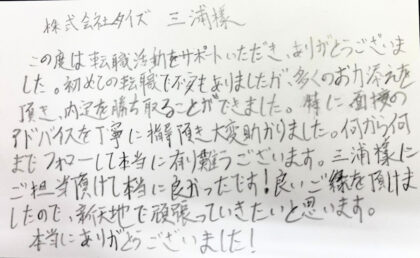 株式会社タイズ 三浦様
この度は転職活動をサポートいただき、ありがとうございま
した。初めての転職で不安もありましたが、多くのお力添えを
頂き、内定を勝ち取ることができました。特に面接の
アドバイスを丁寧に指導頂き大変助かりました。何から何
までフォローして本当に有り難うございます。三浦様に
ご担当頂けて本当に良かったです!良いご縁を頂けま
したので、新天地で頑張っていきたいと思います。
本当にありがとうございました!